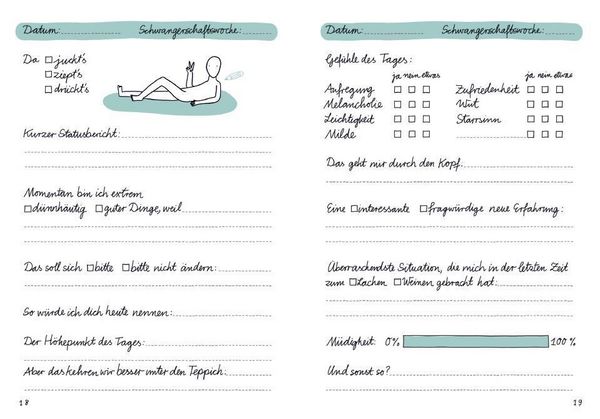 Datum: Schwangerschaftswoche:
Da juckt's
ziept's
drückt's
Kurzer Statusbericht:
Momentan bin ich extrem
dünnhäutig guter Dinge, weil
Das soll sich bitte bitte nicht ändern:
So würde ich dich heute nennen:
Der Höhepunkt des Tages:
Aber das kehren wir besser unter den Teppich:
18
Datum: Schwangerschaftswoche:
Gefühle des Tages:
ja nein etwas ja nein etwas
Aufregung Zufriedenheit
Melancholie Wut
Leichtigkeit Starrsinn
Milde
Das geht mir durch den Kopf:
Eine interessante fragwürdige neue Erfahrung:
Überraschendste Situation, die mich in der letzten Zeit
zum Lachen Weinen gebracht hat:
Müdigkeit: 0% 100 %
Und sonst so?
19